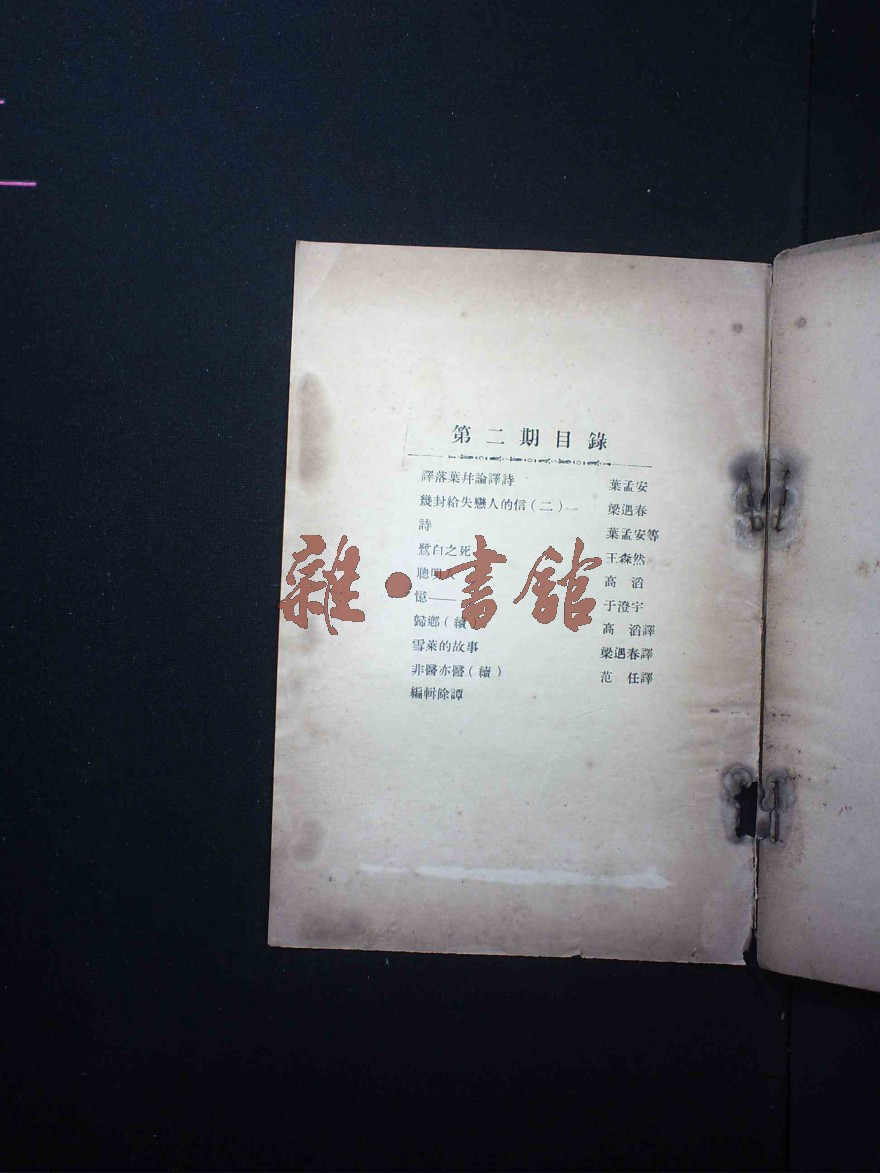 第二期目錄
譯落葉幷論譯詩 葉孟安
幾封給失戀人的信(二)— 梁遇春
詩 葉孟安等
鷺白之死 王森然
聰明人 高滔
憶—— 于澄宇
歸鄉(續 高滔譯
雪萊的故事 梁遇春譯
非醫亦醫(續) 范任譯
編輯餘譚
雜·書館